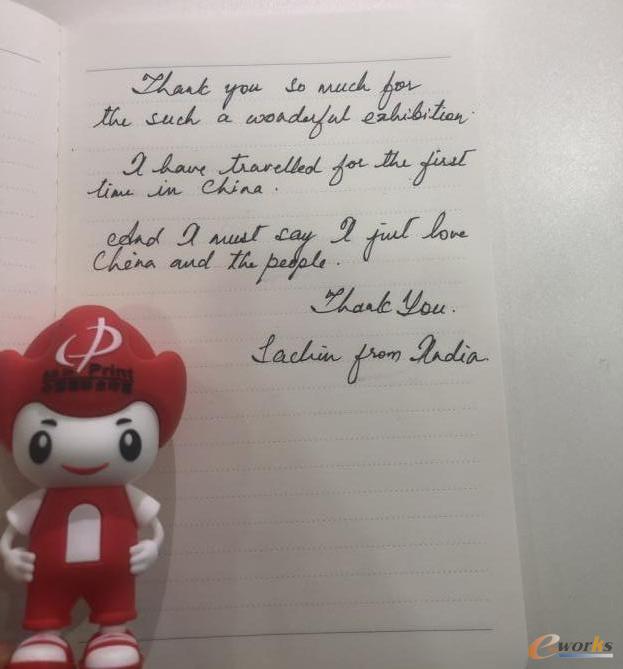 Thank you so much for
the such a wonderful exhibition.
I have travelled for the first
time in China.
And I must say I just love
China and the people.
Thank You.
Sachin from India.
Print
eworks